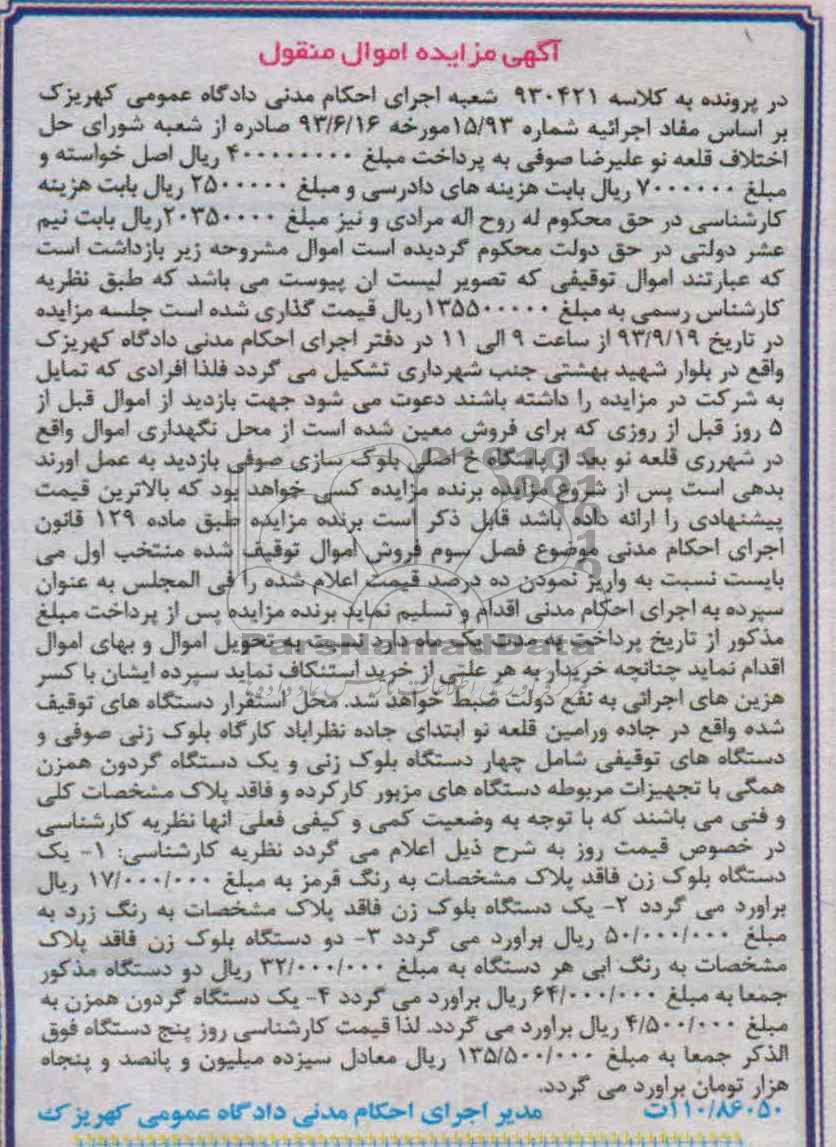 آگهی مزایده اموال منقول
در پرونده به کلاسه ۹۳۰۴۲۱ شعبه اجرای احکام مدنی دادگاه عمومی کهریزک
بر اساس مفاد اجرائیه شماره ۱۵/۹۳مورخه ۹۳/۶/۱۶ صادره از شعبه شورای حل
اختلاف قلعه نو علیرضا صوفی به پرداخت مبلغ ۴۰۰۰۰۰۰۰۰ ریال اصل خواسته و
مبلغ ۷۰۰۰۰۰۰ ریال بابت هزینه های دادرسی و مبلغ ۲۵۰۰۰۰۰ ریال بابت هزینه
کارشناسی در حق محکوم له روح اله مرادی و نیز مبلغ ۲۰۳۵۰۰۰۰ریال بابت نیم
عشر دولتی در حق دولت محکوم گردیده است اموال مشروحه زیر بازداشت است
که عبارتند اموال توقیفی که تصویر لیست ان پیوست می باشد که طبق نظریه
کارشناس رسمی به مبلغ ۱۳۵۵۰۰۰۰۰ریال قیمت گذاری شده است جلسه مزایده
در تاریخ ۹۳/۹/۱۹ از ساعت ۹ الی ۱۱ در دفتر اجرای احکام مدنی دادگاه کهریزک
واقع در بلوار شهید بهشتی جنب شهرداری تشکیل می گردد فلذا افرادی که تمایل
به شرکت در مزایده را داشته باشند دعوت می شود جهت بازدید از اموال قبل از
۵ روز قبل از روزی که برای فروش معین شده است از محل نگهداری اموال واقع
در شهرری قلعه نو بعد از پاسگاه خ اصلی بلوک سازی صوفی بازدید به عمل اورند
بدهی است پس از شروع مزایده برنده مزایده کسی خواهد بود که بالاترین قیمت
پیشنهادی را ارائه داده باشد قابل ذکر است برنده مزایده طبق ماده ۱۲۹ قانون
اجرای احکام مدنی موضوع فصل سوم فروش اموال توقیف شده منتخب اول می
بایست نسبت به واریز نمودن ده درصد قیمت اعلام شده را فی المجلس به عنوان
سپرده به اجرای احکام مدنی اقدام و تسلیم نماید برنده مزایده پس از پرداخت مبلغ
مذکور از تاریخ پرداخت به مدت یک ماه دارد نسبت به تحویل اموال و بهای اموال
ParsNamadData
اقدام نماید چنانچه خریدار به هر علتی از خرید استنکاف نماید سپرده ایشان با کسر
هزین های اجرائی به نفع دولت ضبط خواهد شد. محل استقرار دستگاه های توقیف
شده واقع در جاده ورامین قلعه نو ابتدای جاده نظراباد کارگاه بلوک زنی صوفی و
دستگاه های توقیفی شامل چهار دستگاه بلوک زنی و یک دستگاه گردون همزن
همگی با تجهیزات مربوطه دستگاه های مزبور کارکرده و فاقد پلاک مشخصات کلی
و فنی می باشند که با توجه به وضعیت کمی و کیفی فعلی انها نظریه کارشناسی
در خصوص قیمت روز به شرح ذیل اعلام می گردد نظریه کارشناسی: ۱- یک
دستگاه بلوک زن فاقد پلاک مشخصات به رنگ قرمز به مبلغ ۱۷/۰۰۰/۰۰۰ ریال
براورد می گردد ۲- یک دستگاه بلوک زن فاقد پلاک مشخصات به رنگ زرد به
مبلغ ۵۰/۰۰۰/۰۰۰ ریال براورد می گردد ۳- دو دستگاه بلوک زن فاقد پلاک
مشخصات به رنگ ابی هر دستگاه به مبلغ ۳۲/۰۰۰/۰۰۰ ریال دو دستگاه مذکور
جمعا به مبلغ ۶۴/۰۰۰/۰۰۰ ریال براورد می گردد ۴- یک دستگاه گردون همزن به
مبلغ ۴/۵۰۰/۰۰۰ ریال براورد می گردد. لذا قیمت کارشناسی روز پنج دستگاه فوق
الذکر جمعا به مبلغ ۱۳۵/۵۰۰/۰۰۰ ریال معادل سیزده میلیون و پانصد و پنجاه
هزار تومان براورد می گردد.
۱۱۰/۸۶۰۵۰ت مدیر اجرای احکام مدنی دادگاه عمومی کهریزک